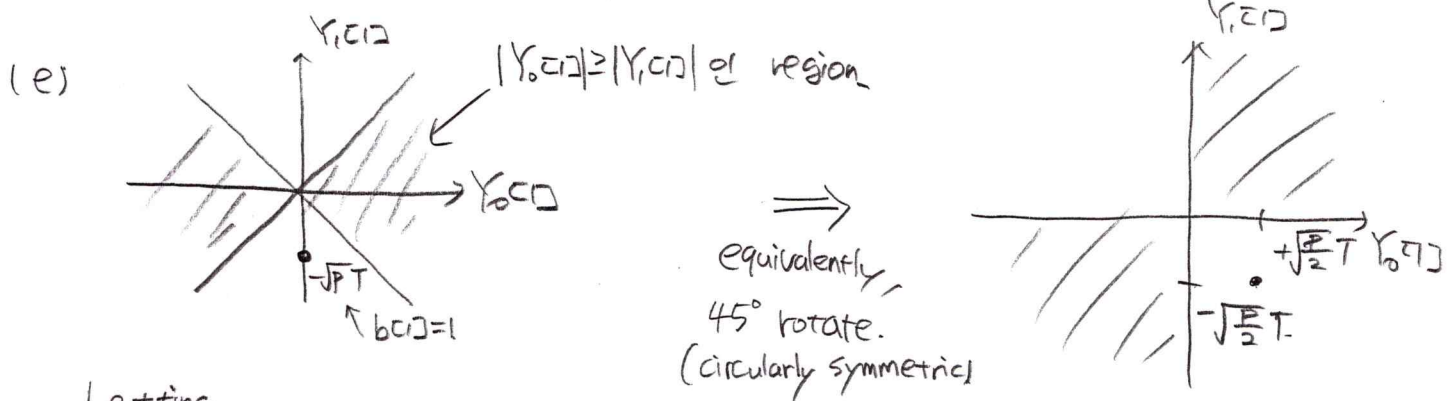 (e)
Y₁[1]
|Y₀[1]|≥|Y₁[1]| 인 region
Y₀[1]
-√P T
b[1]=1
⟹
equivalently,
45° rotate.
(circularly symmetric)
Y₁[1]
+√(P/2) T Y₀[1]
-√(P/2) T
Letting